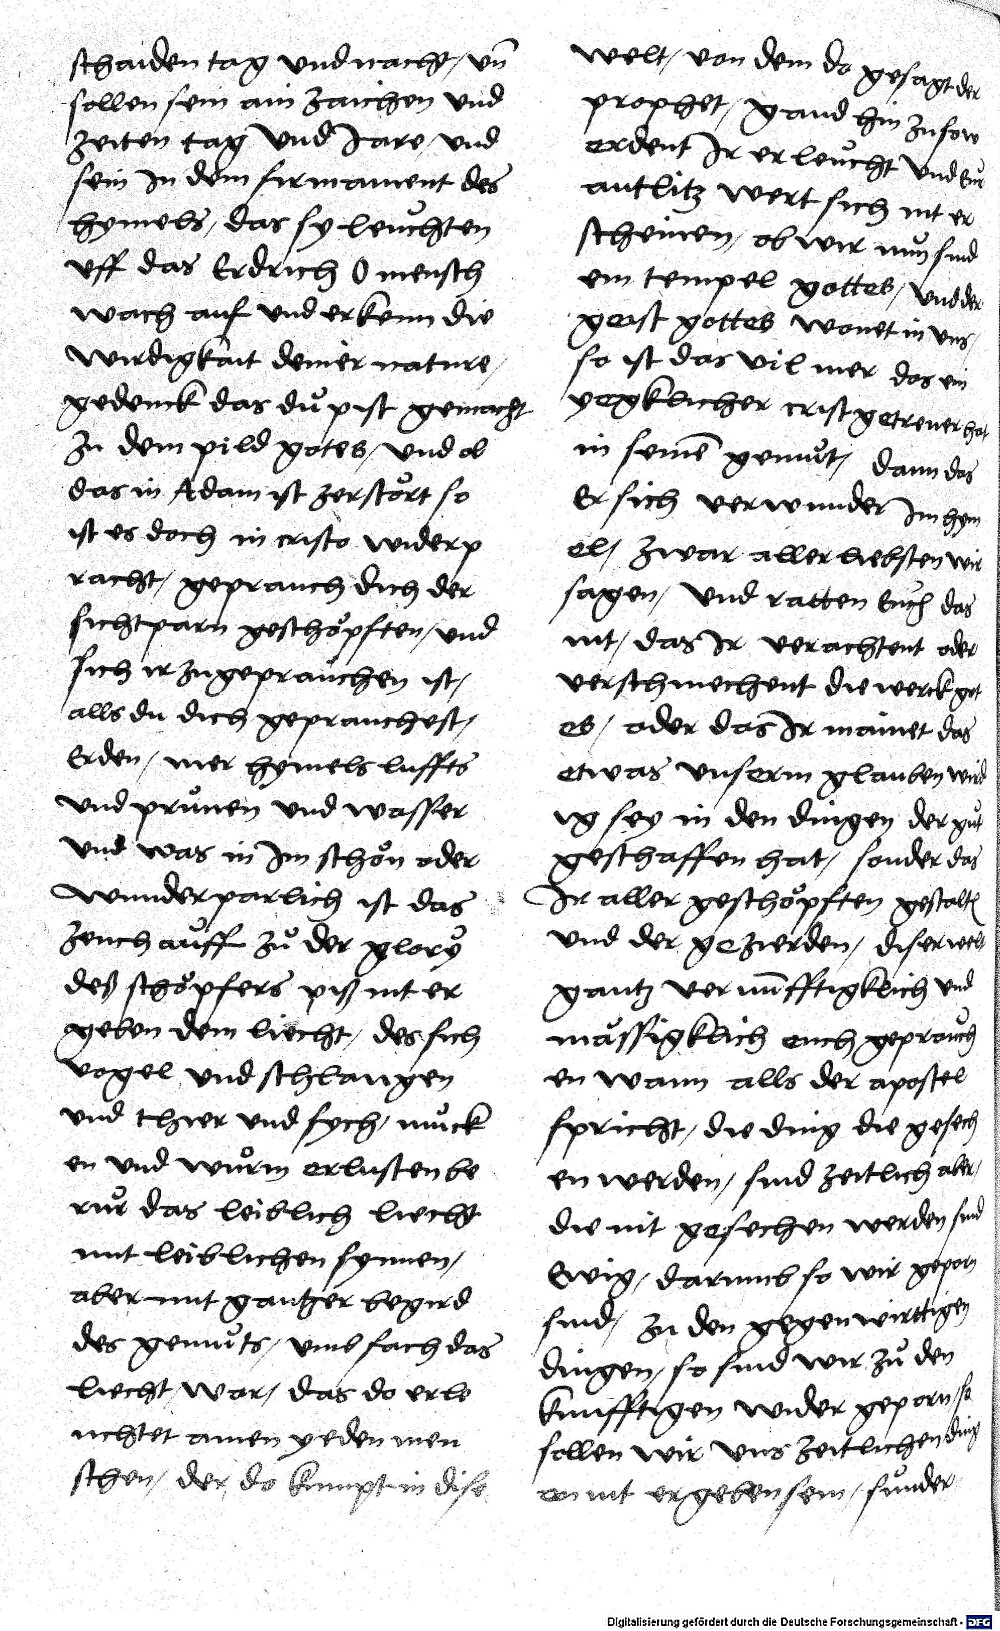 schaiden tag vnd nacht / vn̄
sollen sein ain zaichen vnd
zeiten tag vnd Jare / vnd
sein In dem firmament des
hymels / das sy leuchten
vff das Erdrich O mensch
wach auf vnd erkenn die
wirdigkait deiner nature /
gedenck das du pist gemacht
zu dem pild gotes / vnd ob
das in Adam ist zerstört so
ist es doch in cristo widerp
racht / geprauch dich der
sichtparn geschöpften / vnd
sich ir zugeprauchen ist /
alls du dich geprauchest /
Erden / mer hymels luffts
vnd prunen vnd wasser
vnd was in Im schön oder
wunderparlich ist das
zeuch auff zu der glory
deß schöpfers piß nit er
geben dem liecht / des sich
vogel vnd schlangen
vnd thier vnd sych / muck
en vnd würm erlusten be
rür das leiblich liecht
mit leiblichen synnen /
aber mit gantzer begird
des gemuts / vmbfach das
liecht / war / das do erle
uchtet ainen yeden men
schen / der do kumpt in dise
welt / von dem do gesagt der
prophet / gand hin zu so
erdent Ir erleucht vnd eur
antlitz wert sich nit er
scheinen / ob wir nun sind
ein tempel gottes / vnd der
geist gottes wonet in vns /
so ist das vil mer das ein
yegklicher crist getreuer hat
in seinē gemut / dann das
Er sich verwunder Im hym
el / zwar aller liebsten wir
sagen / vnd ratten Euch das
nit / das Ir verachtent oder
verschmechent die werck got
es / oder das Ir mainet das
etwas vnserm glauben wird
ig sey in den dingen der gut
geschaffen hat / sonder das
Ir aller geschöpften gestalt
vnd der gezierden / diser welt
gantz vernūfftigklich vnd
mässigklich euch geprauch
en wann alls der apostel
spricht / die ding die gesech
en werden / sind zeitlich aber /
die nit gesechen werden sind
Ewig / darumb so wir geporn
sind / zu den gegenwirttigen
dingen / so sind wir zu den
kunfftigen wider geporn / so
sollen wir vns zeitlichen ding
nit ergeben sein / sunder
Digitalisierung gefördert durch die Deutsche Forschungsgemeinschaft - DFG